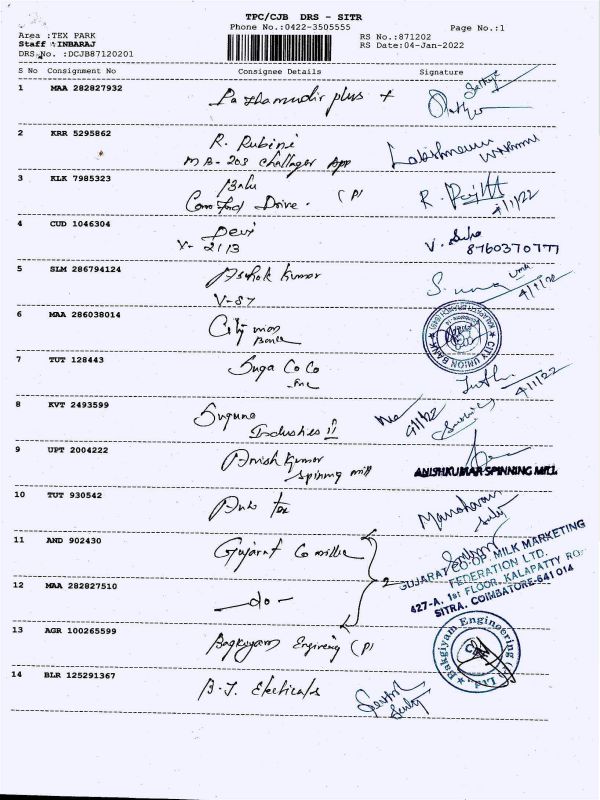 TPC/CJB DRS - SITR
Phone No.:0422-3505555
Page No.:1
Area :TEX PARK
RS No.:871202
Staff :INBARAJ
RS Date:04-Jan-2022
DRS No. :DCJB87120201
S No Consignment No Consignee Details Signature
1 MAA 282827932
2 KRR 5295862 R. Rubini
MB-203 challager App
3 KLK 7985323 Balu
Drive. (P)
R. 4/1/22
4 CUD 1046304 Devi
V-2113
V. 8760370777
5 SLM 286794124 Ashok Kumar
V-87
4/1/22
6 MAA 286038014 City union
Bank
CITY UNION BANK
7 TUT 128443 Suga CoCo
4/1/22
8 KVT 2493599 Suguna
Industries II
4/1/22
9 UPT 2004222 Anish Kumar
spinning mill
ANISHKUMAR SPINNING MILL
10 TUT 930542 tex
Manoharan
11 AND 902430 Gujarat Co millk
2
GUJARAT CO-OP MILK MARKETING
FEDERATION LTD.
427-A, 1st FLOOR, KALAPATTY RO
SITRA, COIMBATORE-641 014
12 MAA 282827510 -do-
13 AGR 100265599 Bagkiyam Engineering (P)
Bakgiyam Engineering (P) Ltd
14 BLR 125291367 B.T. Electricals